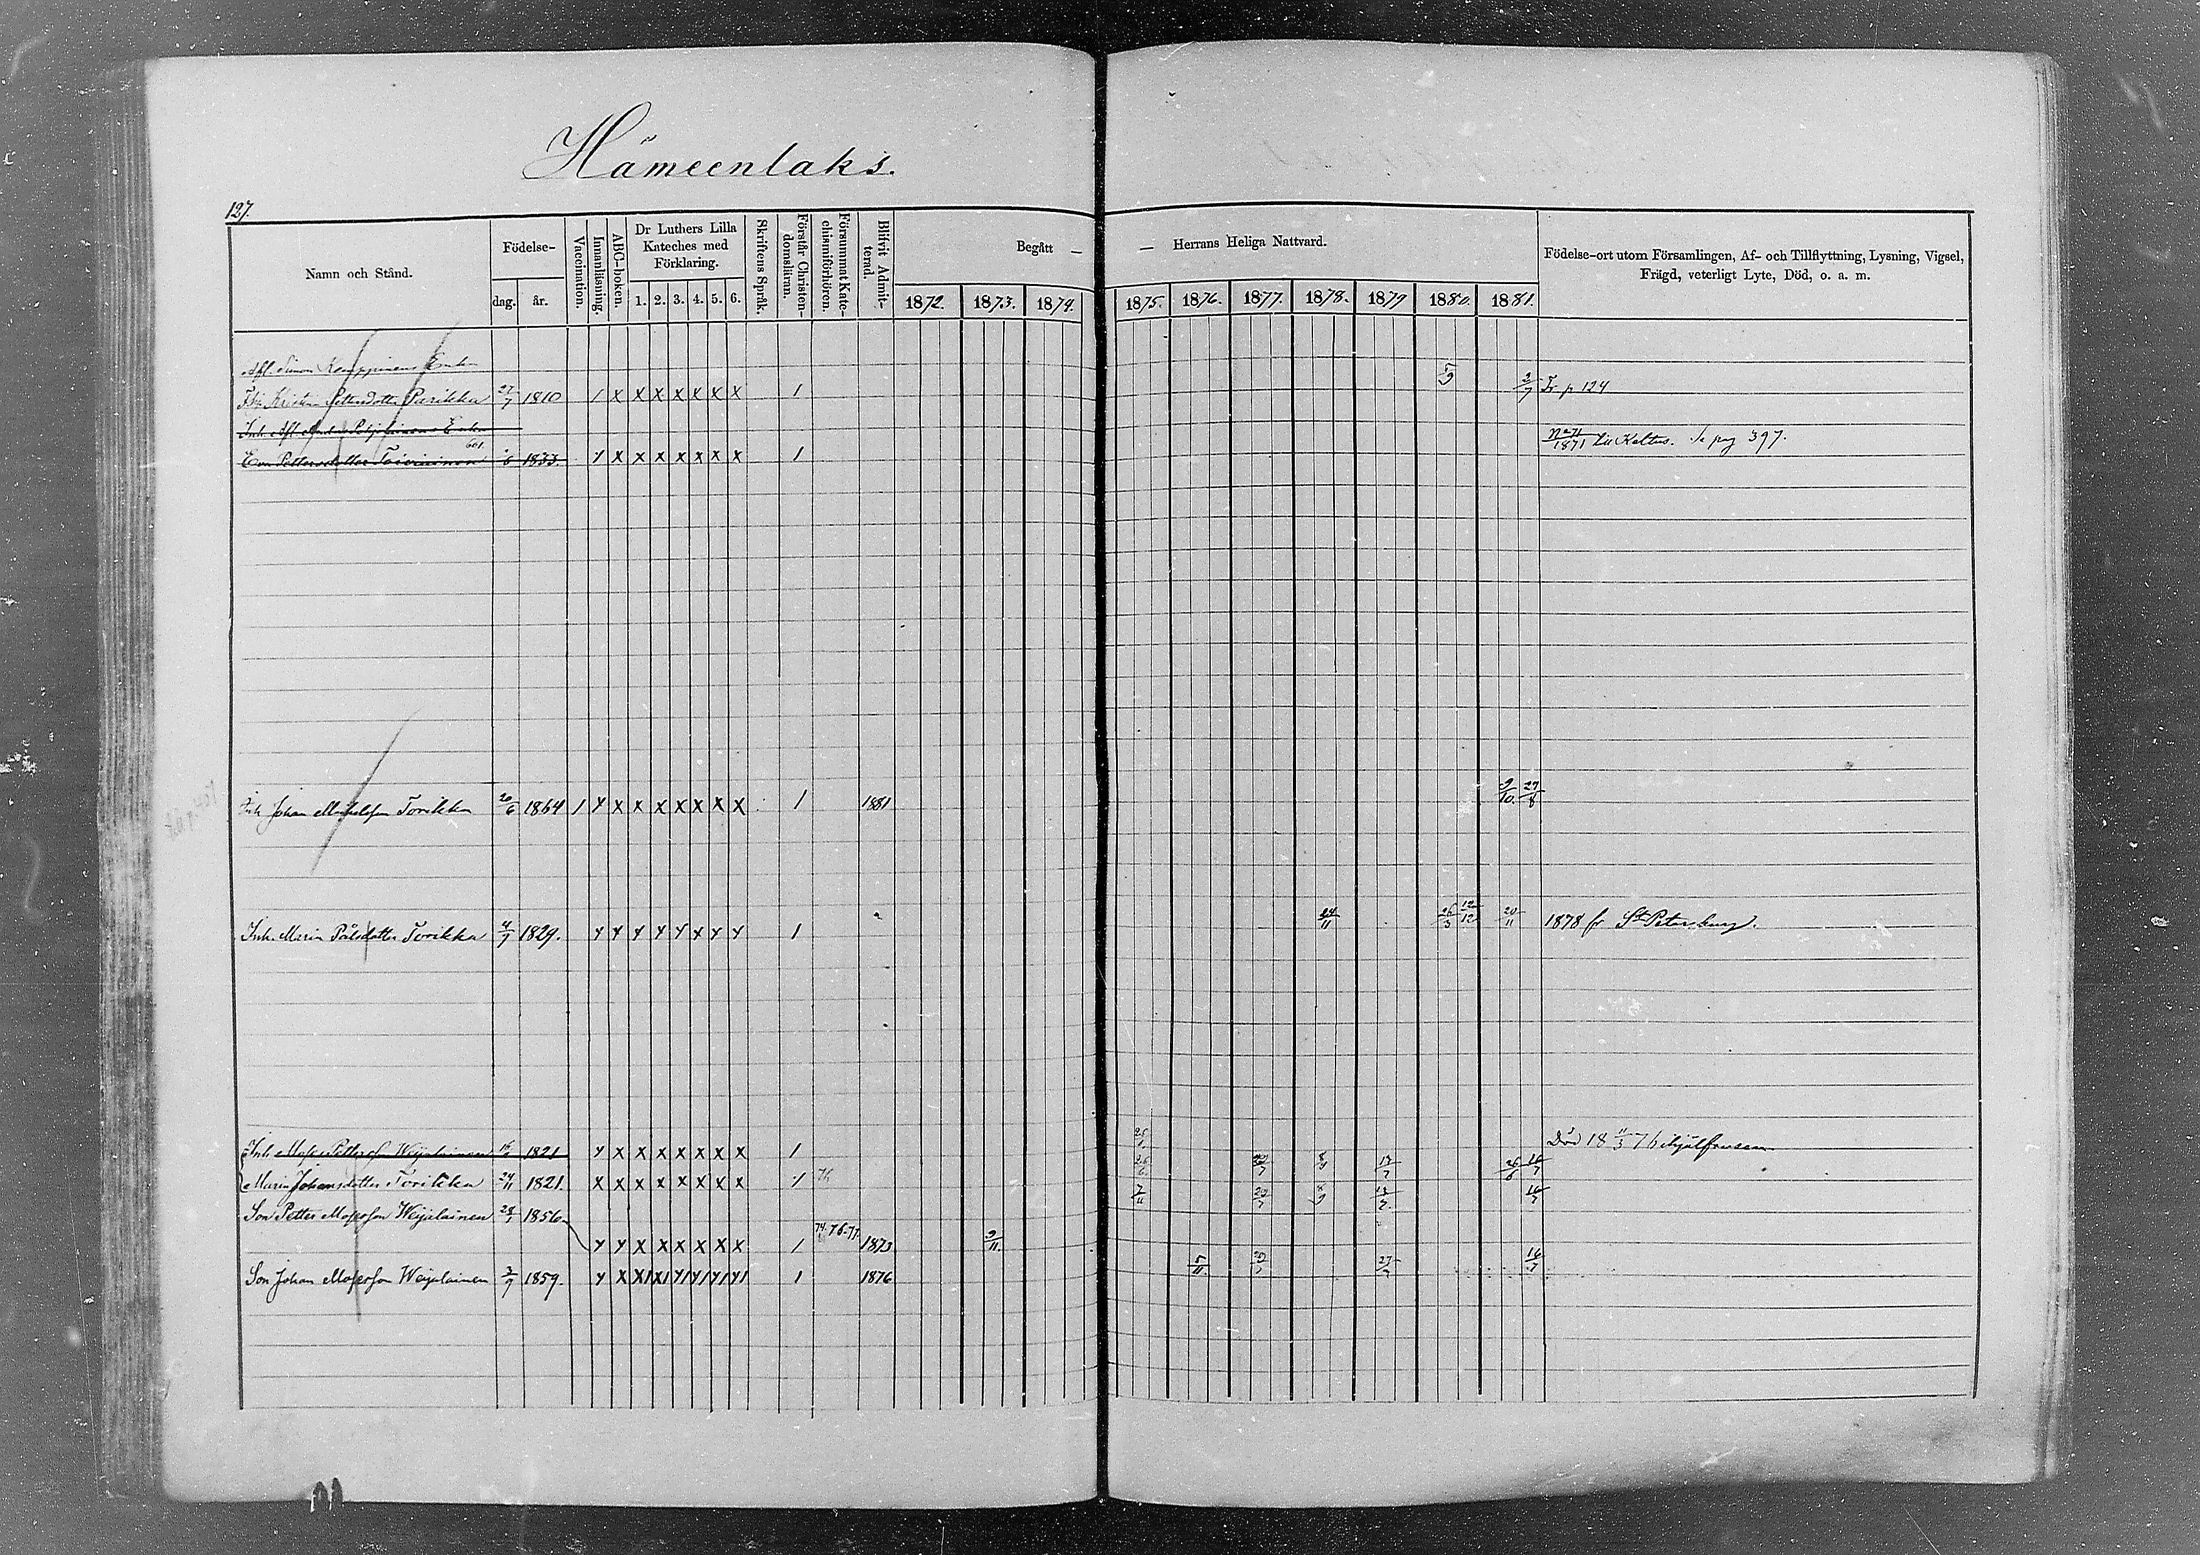 Hämeenlaks.
127.
Namn och Stånd.
Födelse-
dag.
år.
Vaccination.
Innanläsning.
ABC-boken.
Dr Luthers Lilla
Kateches med
Förklaring.
1. 2. 3. 4. 5. 6.
Skriftens Språk.
Förstår Christen-
domsläran.
Försummat Kate-
chismiförhören.
Blifvit Admit-
terad.
Begått —
— Herrans Heliga Nattvard.
1872. 1873. 1874. 1875. 1876. 1877. 1878. 1879 1880. 1881.
Födelse-ort utom Församlingen, Af- och Tillflyttning, Lysning, Vigsel,
Frägd, veterligt Lyte, Död, o. a. m.
Afl. Simon Kemppinens Enka
Kristin Pettersdotter Parikka 27/7 1810 / x x x x x x x 1 2/7 Fr p 124
Inh. Afl.
601.
Eva Pettersdotter 1833. x x x x x x x 1 1871 till Keltus. Se pag 397.
Inh. Johan Torikka 20/6 1864 1 Y x x x x x x x 1 1881 9/10. 27/8
Inh. Maria Pålsdotter Torikka 4/7 1829. Y Y Y Y Y x Y Y 1 24/11 26/3 12/12 20/11 1878 fr St Petersburg.
Inh. Petterson Weijalainen 1821 Y x x x x x x x 1 Död 18 11/3 76 ihjälfrusen
Maria Johansdotter Torikka 24/11 1821. x x x x x x x x 1 76 13/7 26/6 16/7
Son Petter Mosesson Weijalainen 28/1 1856. 7/11 13/7 16/7
Y Y x x x x x x 1 74. 76. 77. 1873 9/11.
Son Johan Mosesson Weijalainen 3/7 1859. Y x x1 x1 Y1 Y1 Y1 Y1 1 1876 5/11 27/7 16/7